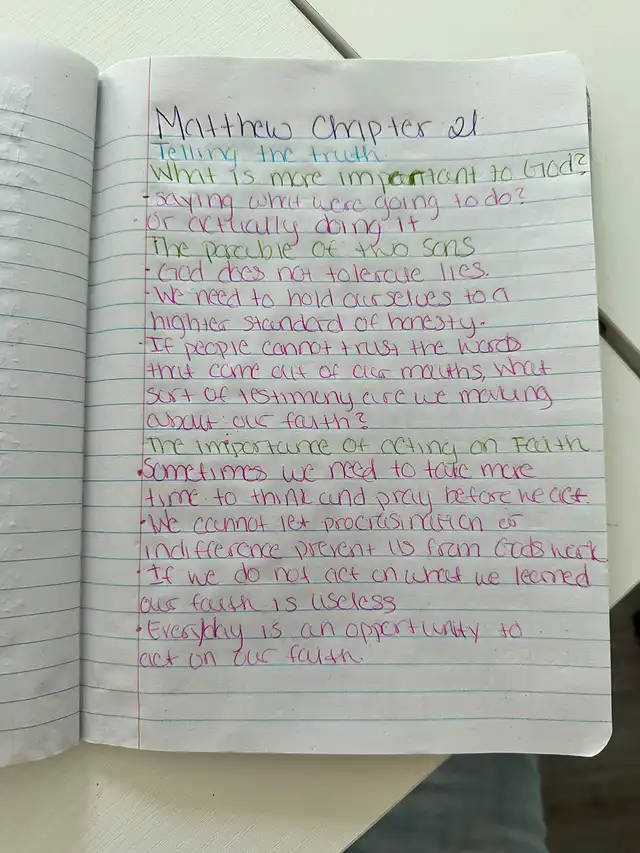 Matthew Chapter 21
Telling the truth
What is more important to God?
- saying what were going to do?
or actually doing it
The parable of two sons
- God does not tolerate lies.
- We need to hold ourselves to a
higher standard of honesty.
- If people cannot trust the words
that come out of our mouths, what
sort of testimony are we making
about our faith?
The importance of acting on Faith
• Sometimes we need to take more
time to think and pray before we act.
- We cannot let procrasination or
indifference prevent us from Gods work
- If we do not act on what we learned
our faith is useless
• Everyday is an opportunity to
act on our faith.